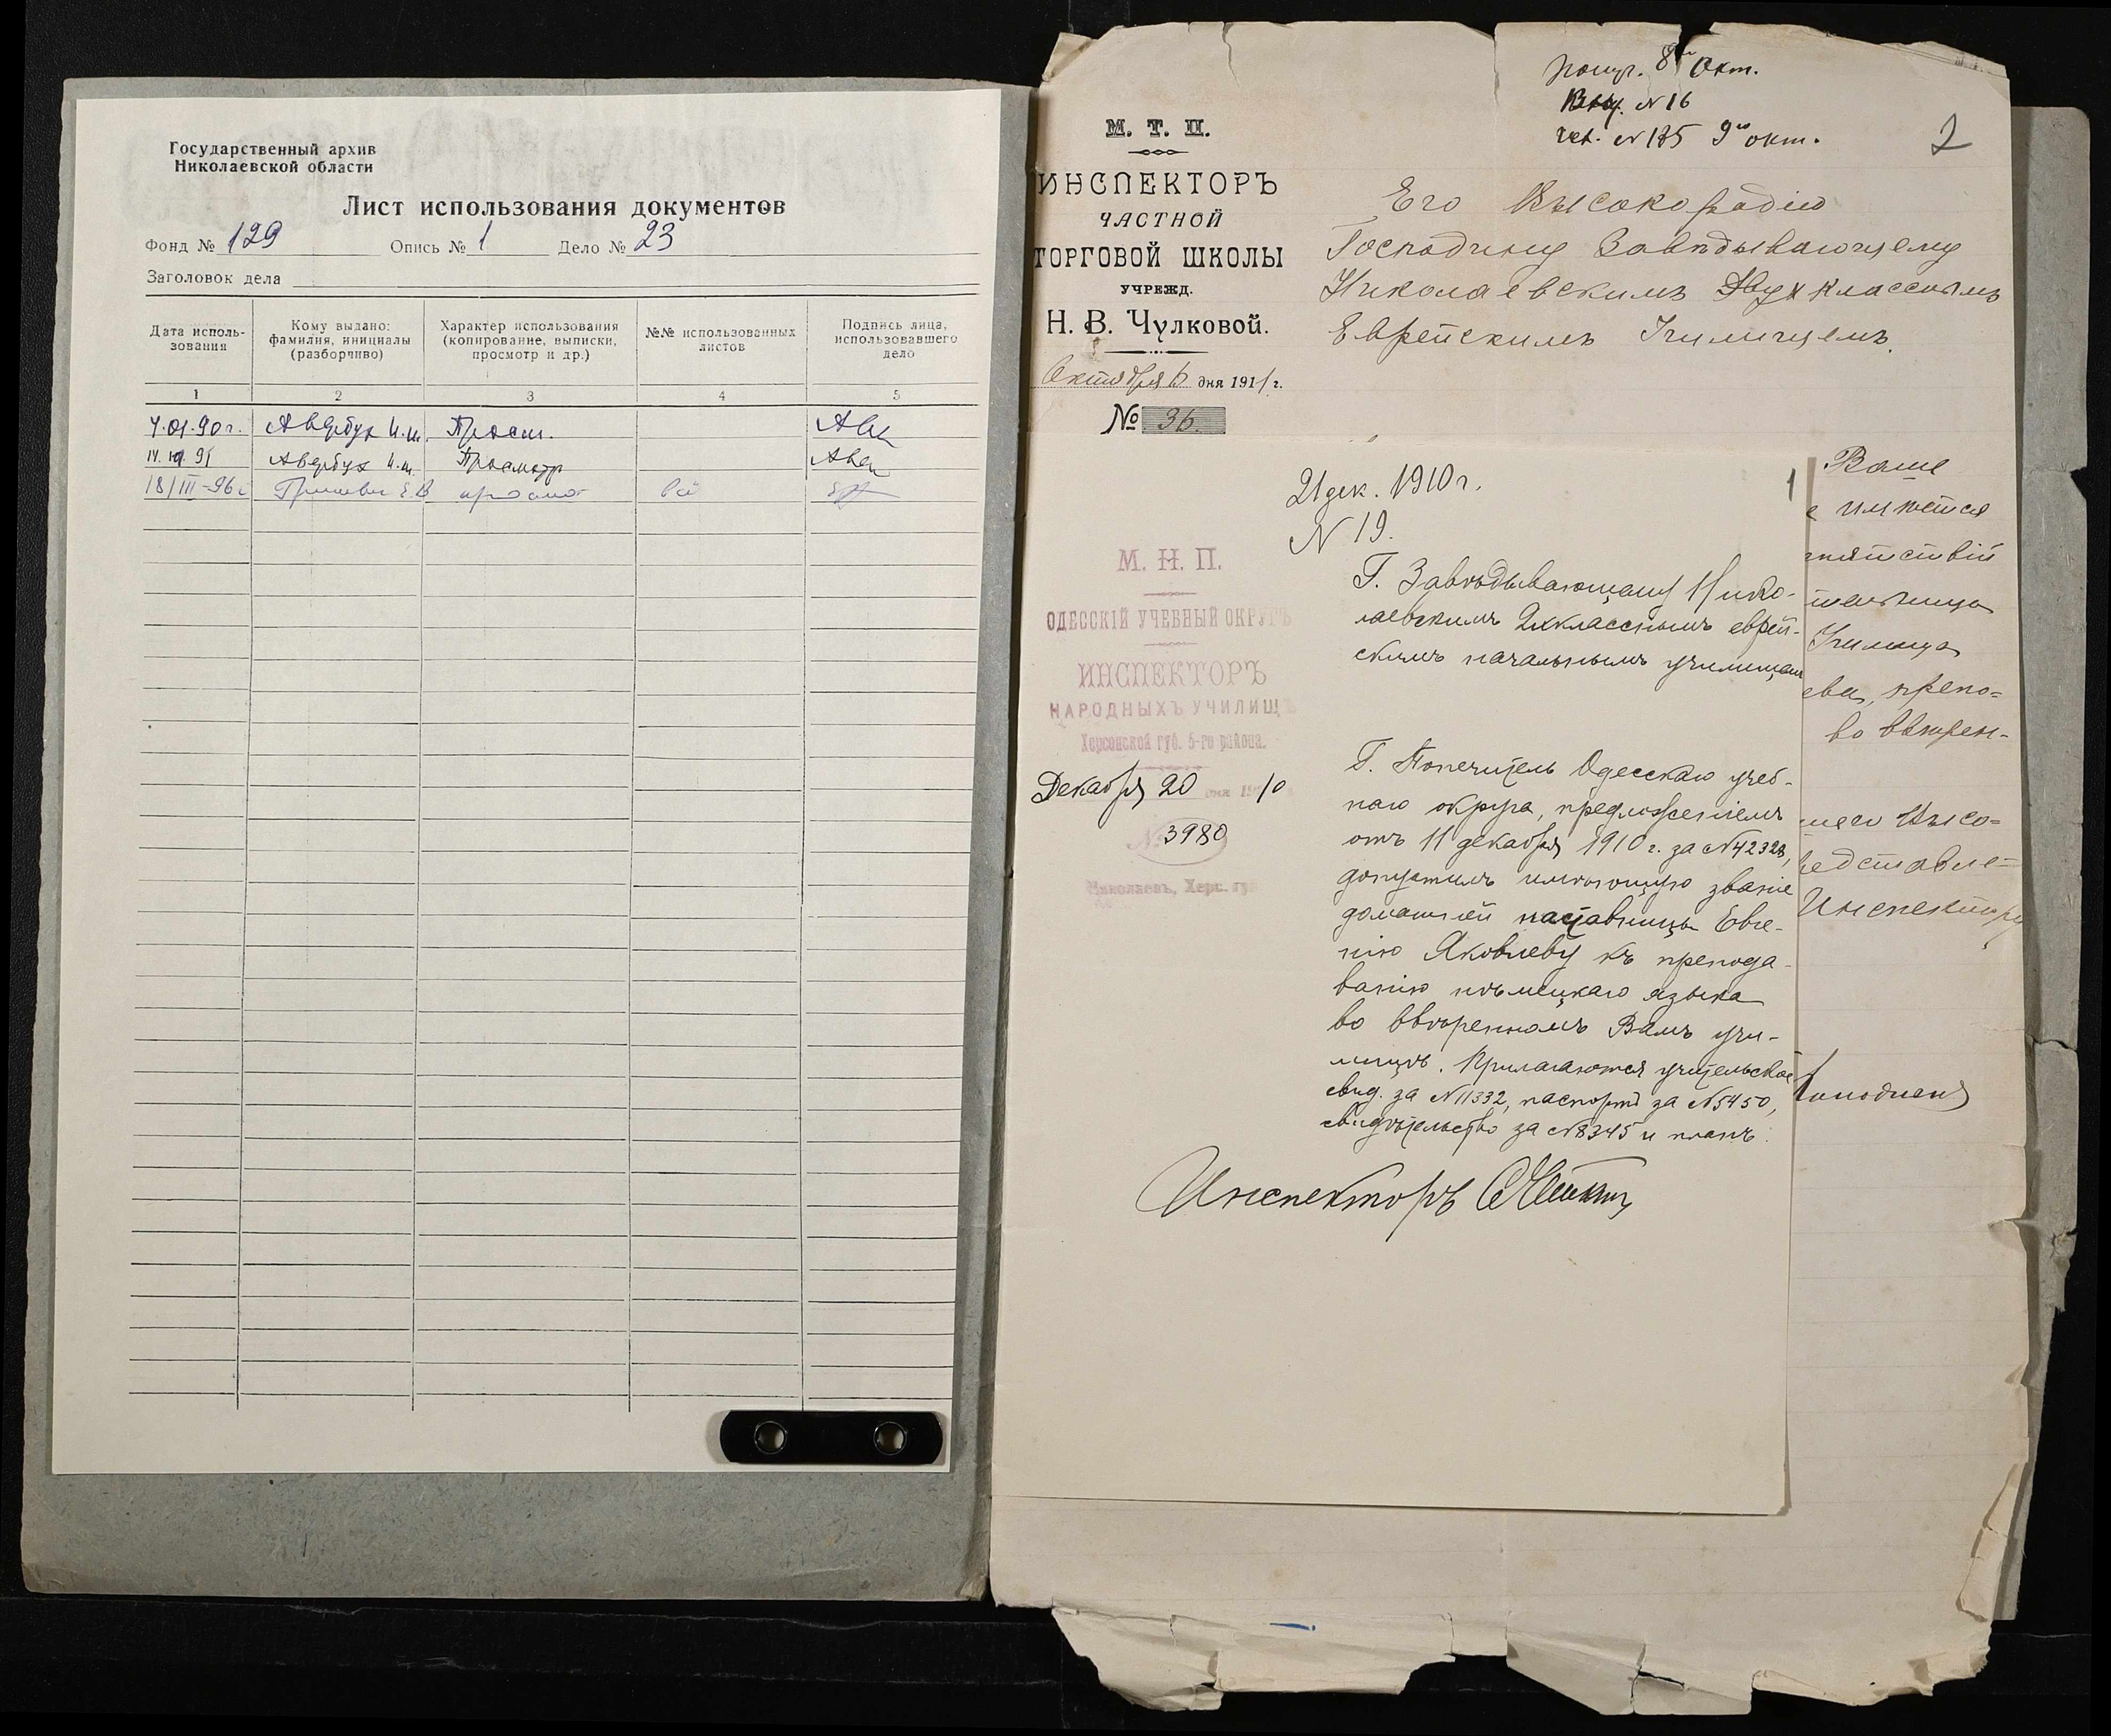 Государственный архив
Николаевской области
Лист использования документов
Фонд № 129 Опись № 1 Дело № 23
Заголовок дела
Дата исполь-зования
Кому выдано: фамилия, инициалы (разборчиво)
Характер использования (копирование, выписки, просмотр и др.)
№№ использованных листов
Подпись лица, использовавшего дело
1 2 3 4 5
4.01.90 г. Авербух И.Ш. Просм.
Авербух И.Ш. Просмотр
18/III-96 г
8го Окт.
№ 16
№ 135 9го окт.
2
М. Т. П.
ИНСПЕКТОРЪ
ЧАСТНОЙ
ТОРГОВОЙ ШКОЛЫ
УЧРЕЖД.
Н. В. Чулковой.
Октября 6 дня 1911 г.
№ 36.
Его Высокородію
Господину Завѣдывающему
Николаевскимъ Двухкласснымъ
Еврейскимъ Училищемъ.
Ваше
е имѣется
пятствій
Училища
ева, препо=
во ввѣрен-
шего Высо=
едставле=
Инспектору
1
21 дек. 1910 г.
N 19.
М. Н. П.
ОДЕССКІЙ УЧЕБНЫЙ ОКРУГЪ
ИНСПЕКТОРЪ
НАРОДНЫХЪ УЧИЛИЩЪ
Херсонской губ. 5-го района.
Декабря 20 дня 1910
№ 3980
Николаевъ, Херс. губ.
Г. Завѣдывающему Нико-
лаевскимъ 2хкласснымъ еврей-
скимъ начальнымъ училищемъ
Г. Попечитель Одесскаго учеб-
наго округа, предложеніемъ
отъ 11 декабря 1910 г. за №42328,
допустилъ имѣющую званіе
домашней наставницы Евге-
нію Яковлеву къ препода-
ванію нѣмецкаго языка
во ввѣренномъ Вамъ учи-
лищѣ. Прилагаются учительское
свид. за №11332, паспортъ за №5450,
свидѣтельство за №8345 и планъ.
Инспекторъ